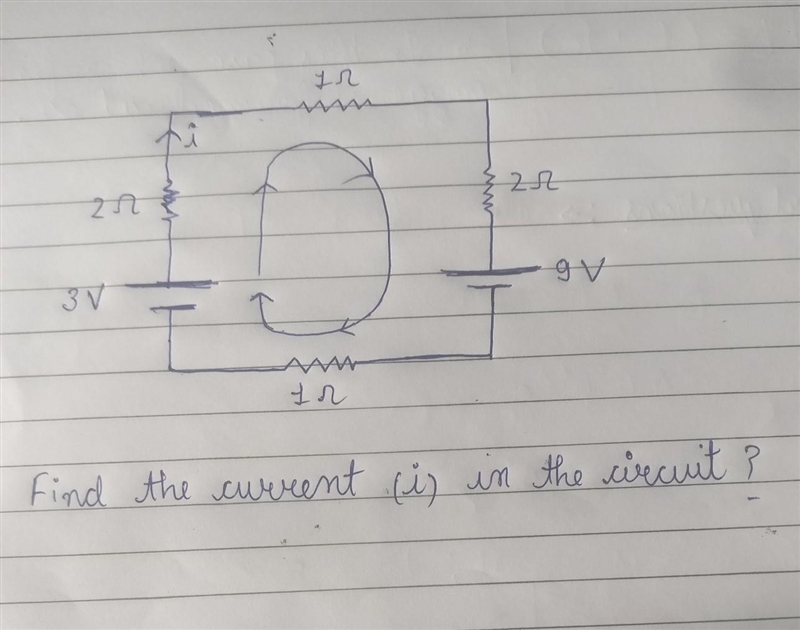 1Ω
i
2Ω
2Ω
3V
9V
1Ω
Find the current (i) in the circuit?